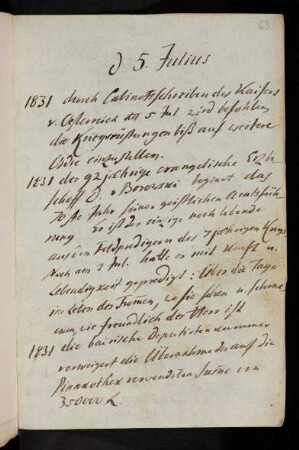 63
d 5. Julius
1831 durch Cabinetsschreiben des Kaisers
v. Oesterreich am 5 Jul wird befohlen
die Kriegsrüstungen biß auf weitere
Ordre einzustellen.
1831 der 92jährige evangelische Erzbi
schoff D. v Borowski beginnt das
70ste Jahr seiner geistlichen Amtsfüh
rung Er ist der einzige noch lebende
aus den Feldpredigern des 7jährigen Kriegs
Noch am 3 Jul. hatte er mit Kraft u.
Lebendigkeit gepredigt: Über die Tage
im Leben des Frommen, wo sie sehen u. schme
cken wie freundlich der Herr ist
1831 die bairische Deputirtenkammer
verweigert die Übernahme der auf die
Pinakothek verwendeten Summe von
350000